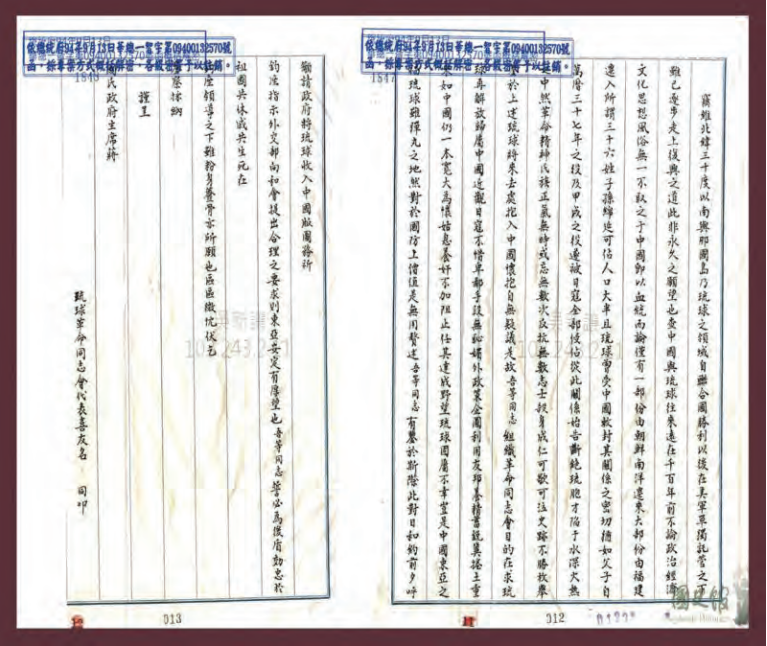 依總統府94年9月13日華總一智字第09400132570號
函，採專密方式概括解密，各級密等予以註銷。
竊維北緯三十度以南與那國島乃琉球之領域自聯合國勝利以後在美軍單獨託管之下
雖已逐步走上復興之道此非永久之願望也查中國與琉球往來遠在千百年前不論政治經濟
文化思想風俗無一不取之于中國卽以血統而論僅有一部份由朝鮮南洋遷來大部份由福建
遷入所謂三十六姓子孫綿延可佔人口大半且琉球曾受中國敕封其關係之密切猶如父子自
萬曆三十七年之役及甲戌之役遭日寇全部侵佔從此關係始告斷絕琉胞才陷于水深火熱
中然革命精神民族正氣無時或忘無數次反抗無數志士殺身成仁可歌可泣史跡不勝枚舉
於上述琉球將來去處投入中國懷抱自無疑議是故吾等同志組織革命同志會目的在求琉
球再解放歸屬中國近觀日寇不惜卑鄙手段無恥媚外政策企圖利用友邦養精蓄銳冀捲土重
來如中國仍一本寬大為懷姑息養奸不加阻止任其達成野望琉球固屬不幸豈是中國東亞之
琉球雖彈丸之地然對於國防上價值是無用贅述吾等同志有鑒於斯際此對日和約前夕呼
312
依總統府94年9月13日華總一智字第09400132570號
函，採專密方式概括解密，各級密等予以註銷。
籲請政府將琉球收入中國版圖務祈
鈞座指示外交部向和會提出合理之要求則東亞安定有厚望也吾等同志誓必為後盾効忠於
祖國共休戚共生死在
鈞座領導之下雖粉身碎骨亦所願也區區微忱伏乞
鑒核採納
謹呈
國民政府主席蔣
琉球革命同志會代表喜友名 同叩
313